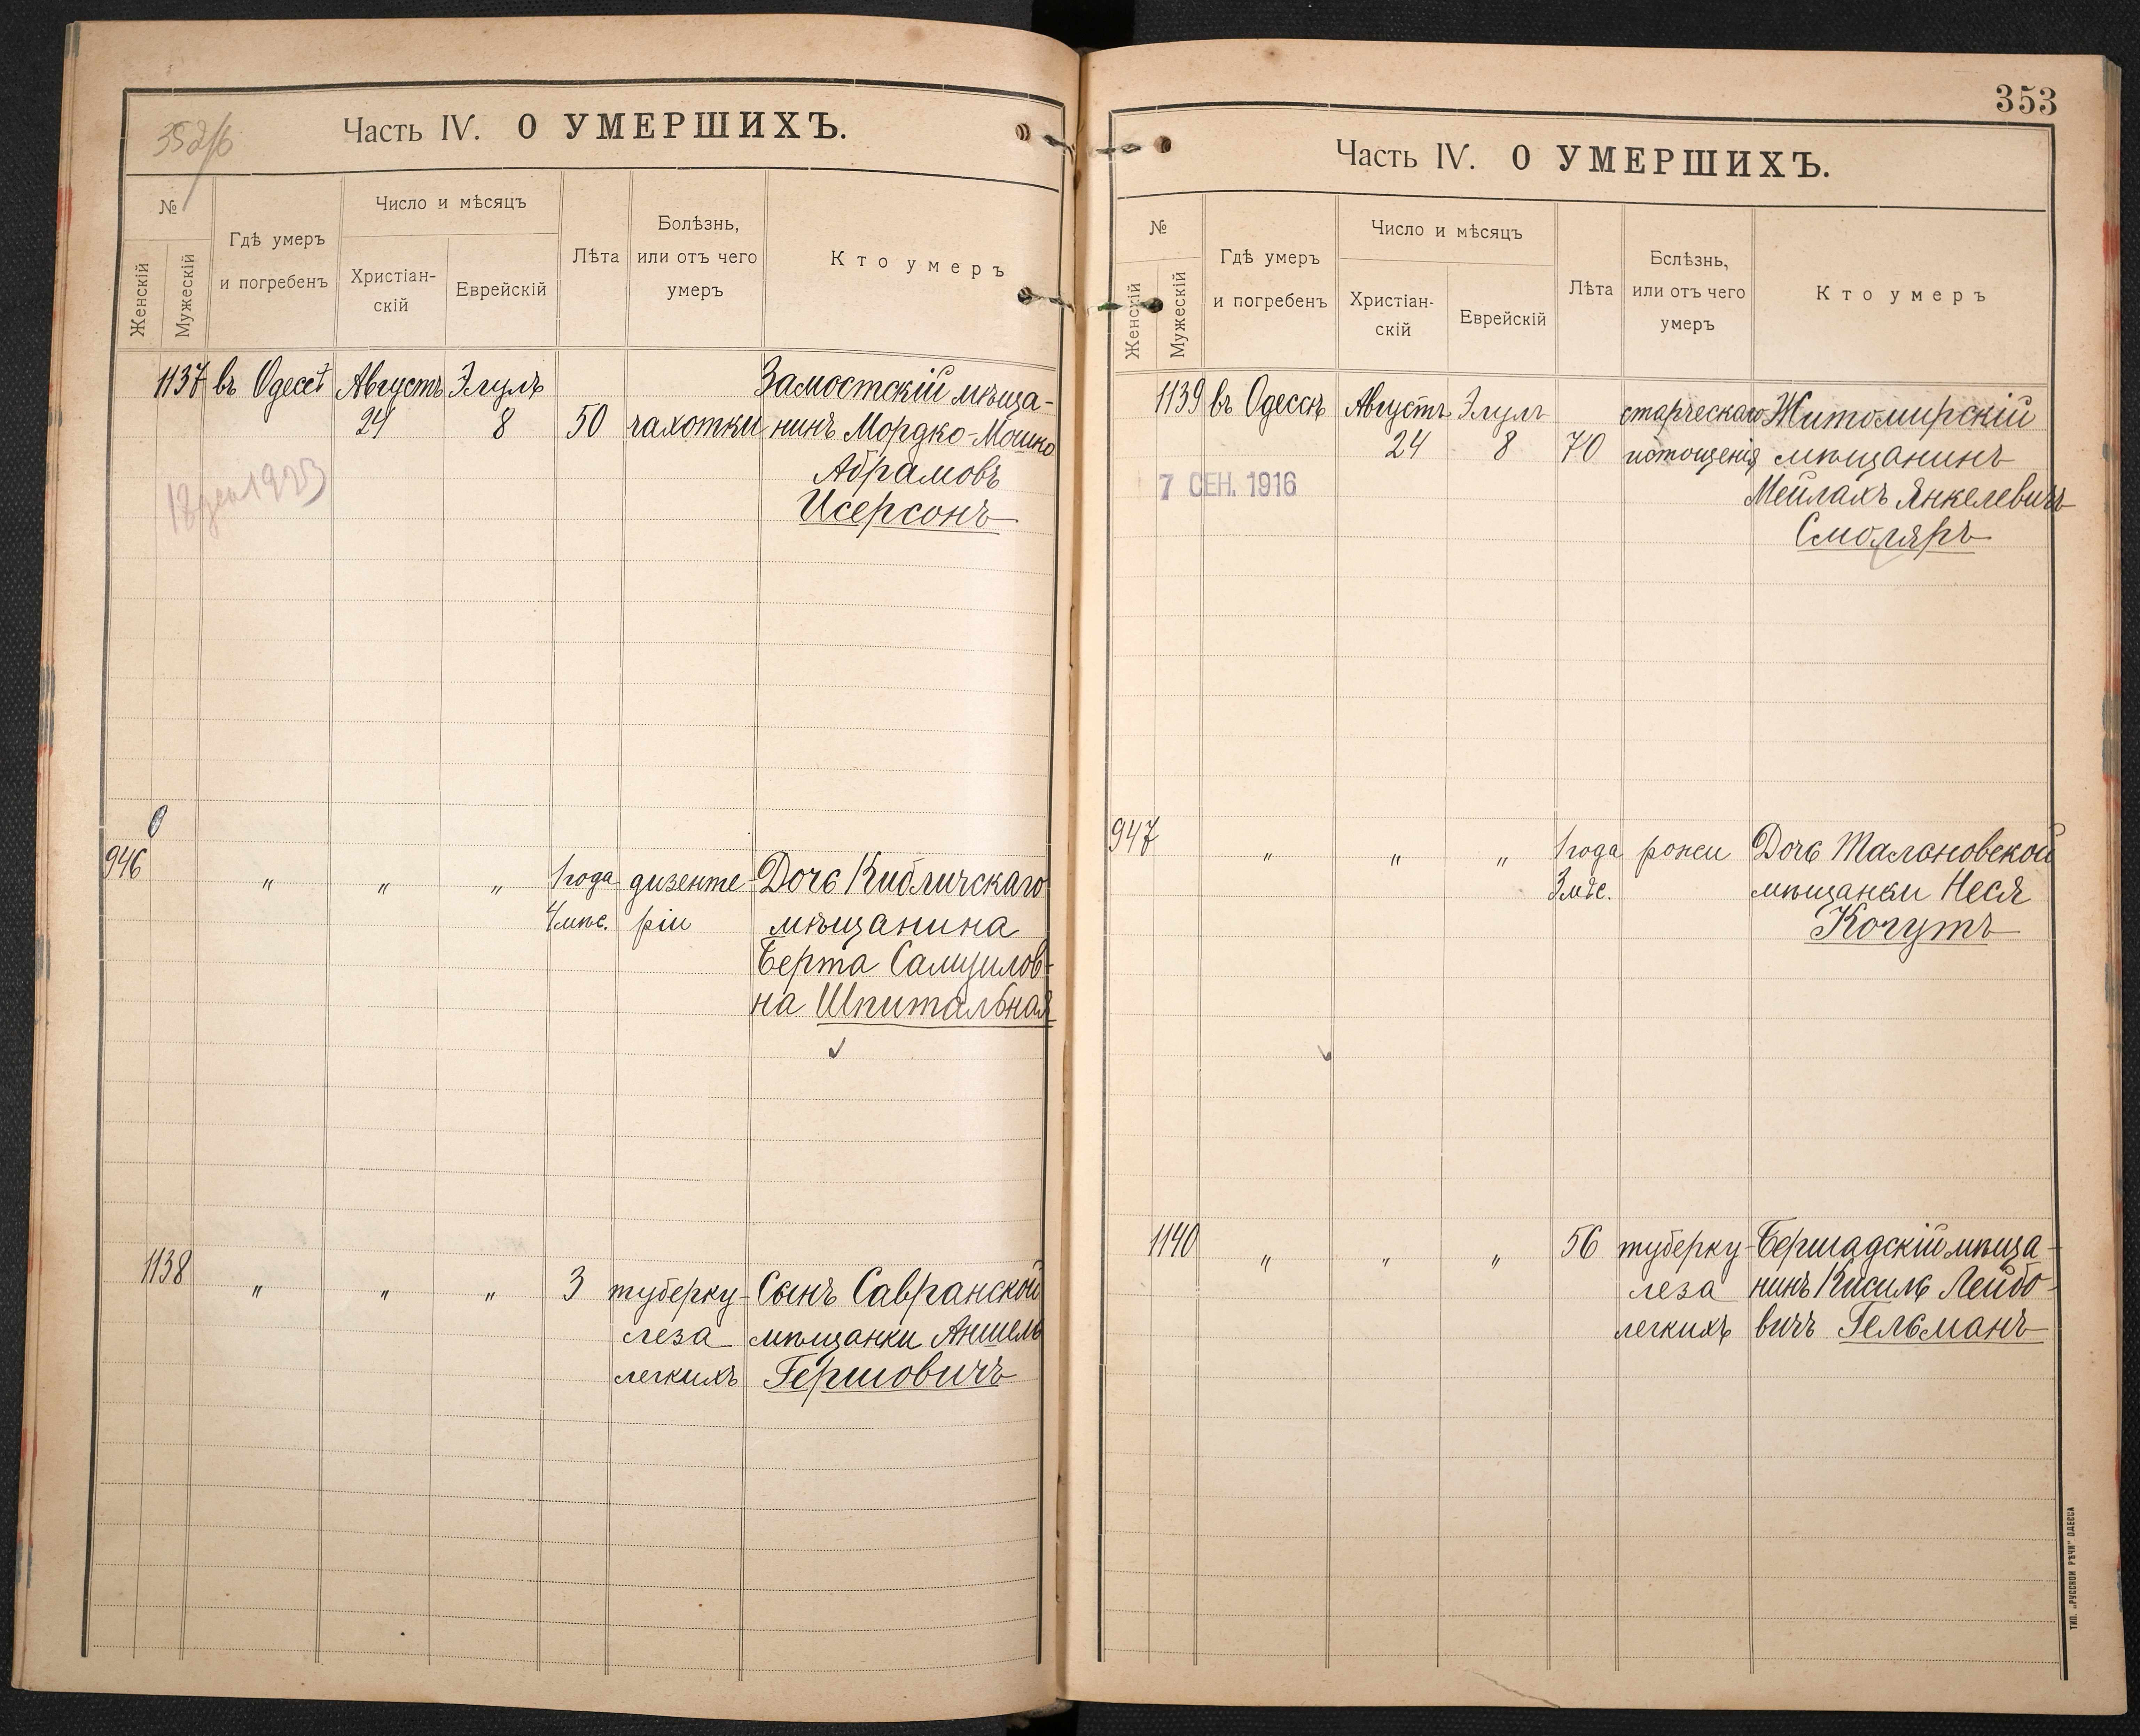 Часть IV. О УМЕРШИХЪ.
№
Женскій
Мужескій
Гдѣ умеръ
и погребенъ
Число и мѣсяцъ
Христіан-
скій
Еврейскій
Лѣта
Болѣзнь,
или отъ чего
умеръ
Кто умеръ
1137 въ Одессѣ Августъ Элулъ Замостскій мѣща-
24 8 50 чахотки нинъ Мордко-Мошко
Абрамовъ
Исерсонъ
946 " " " 1 года дизенте- Дочь Кибличскаго
4 мѣс. ріи мѣщанина
Берта Самуилов-
на Шпитальная
1138 " " " 3 туберку- Сынъ Савранской
леза мѣщанки Аншель
легкихъ Гершовичъ
353
Часть IV. О УМЕРШИХЪ.
№
Женскій
Мужескій
Гдѣ умеръ
и погребенъ
Число и мѣсяцъ
Христіан-
скій
Еврейскій
Лѣта
Бслѣзнь,
или отъ чего
умеръ
Кто умеръ
1139 въ Одессѣ Августъ Элулъ старческаго Житомирскій
24 8 70 истощенія мѣщанинъ
7 СЕН. 1916
Мейлахъ Янкелевичъ
Смоляръ
947 " " " 1 года рожи Дочь Тальновской
3 мѣс. мѣщанки Неся
Когутъ
1140 " " " 56 туберку- Бершадскій мѣща-
леза нинъ Кисиль Лейбо-
легкихъ вичъ Гельманъ
ТИП. „РУССКОЙ РѢЧИ" ОДЕССА